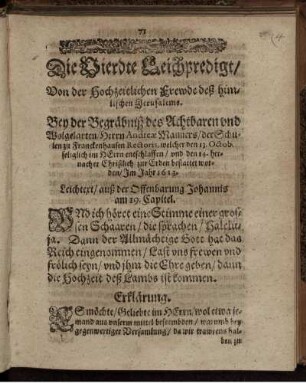 77
Die Vierdte Leichpredigt/
Von der Hochzeitlichen Frewde deß him-
lischen Jerusalems.
Bey der Begräbniß des Achtbaren vnd
Wolgelarten Herrn Andreæ Manners/ der Schu-
len zu Franckenhausen Rectoris, welcher den 13. Octob.
seliglich im HErrn entschlaffen / vnd den 15. her-
nacher Christlich zur Erden bestattet wor-
den/ Im Jahr 1613.
Leichtext/ auß der Offenbarung Johannis
am 19. Capitel.
VNd ich hörete eine Stimme einer gros-
sen Schaaren/ die sprachen/ Halelu-
ja. Dann der Allmächtige Gott hat das
Reich eingenommen/ Last vns frewen vnd
frölich seyn/ vnd jhm die Ehre geben/ dann
die Hochzeit deß Lambs ist kommen.
Erklärung.
ES möchte/ Geliebte im HErrn/ wol etwa je-
mand aus vnserm mittel befrembden / warumb bey
gegenwertiger Versamlung/ da wir trawrens hal-
ben zu